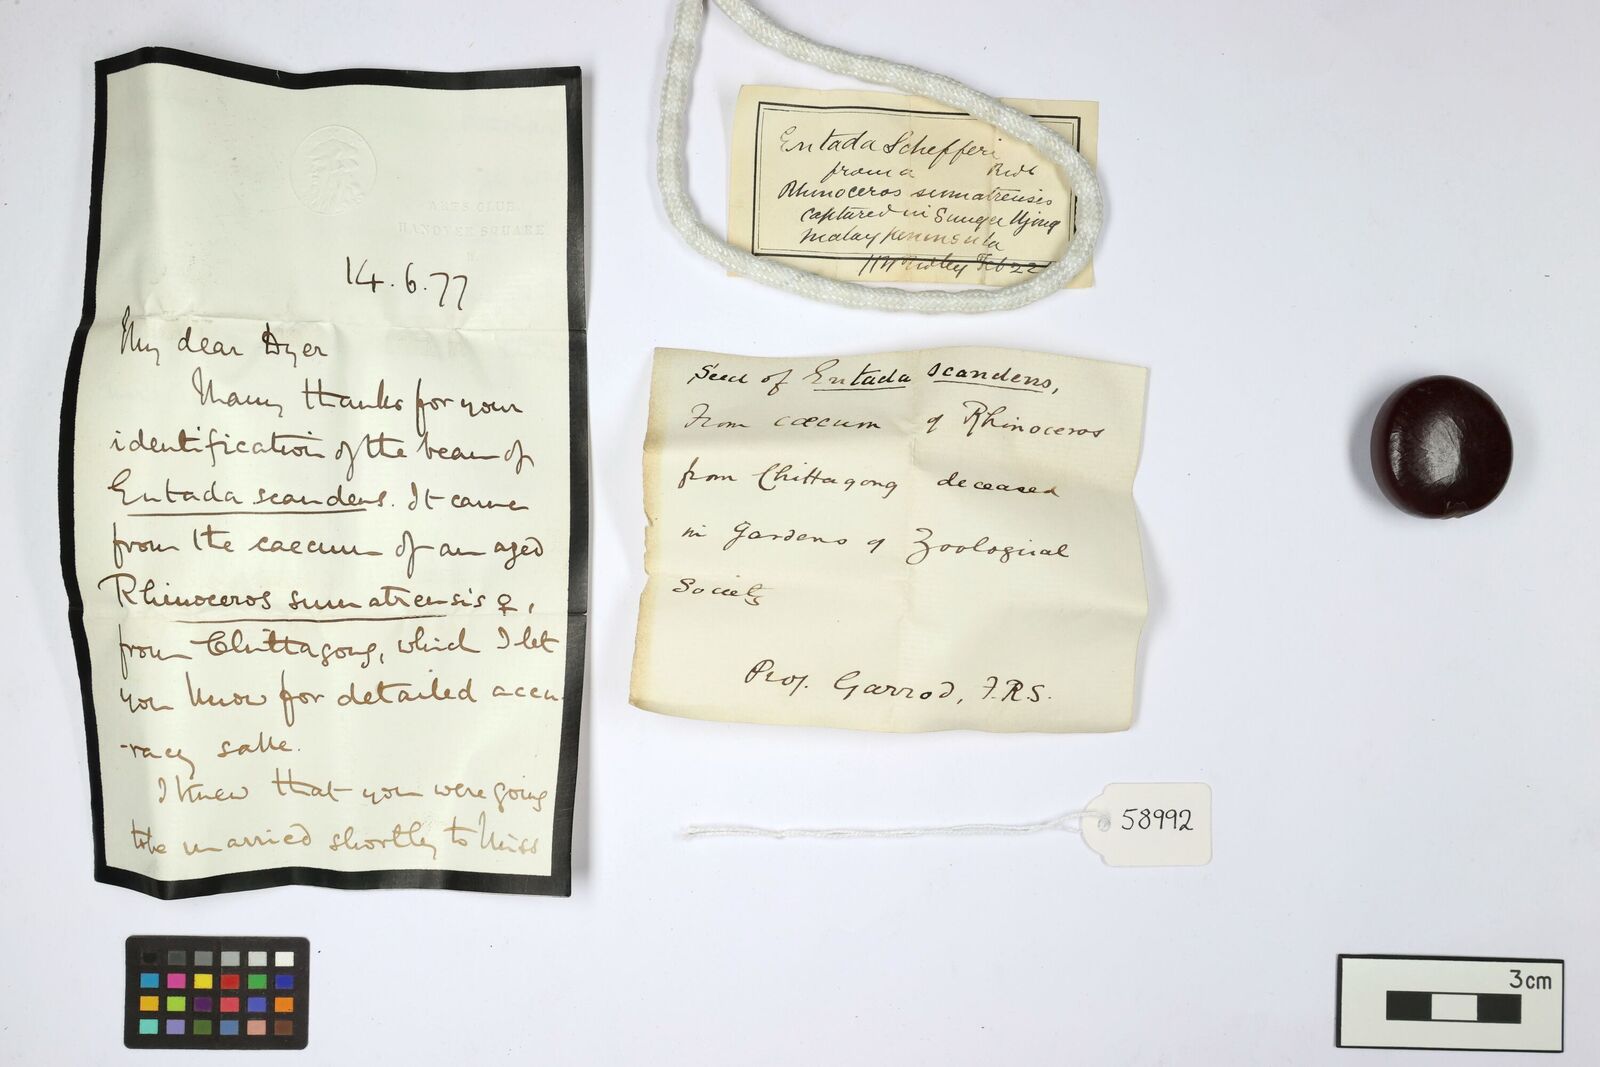 ARTS CLUB.
HANOVER SQUARE.
14.6.77
My dear Dyer
Many thanks for your
identification of the bean of
Entada scandens. It came
from the caecum of an aged
Rhinoceros sumatrensis ♀,
from Chittagong, which I let
you know for detailed accu-
-racy sake.
I knew that you were going
to be married shortly to Miss
Entada Schefferi
from a Ridl
Rhinoceros sumatrensis
captured in Sungei Ujong
Malay Peninsula
HN Ridley Feb 22
Seed of Entada scandens,
From cæcum of Rhinoceros
from Chittagong deceased
in Gardens of Zoological
Society
Prof. Garrod, F.R.S.
58992
3cm